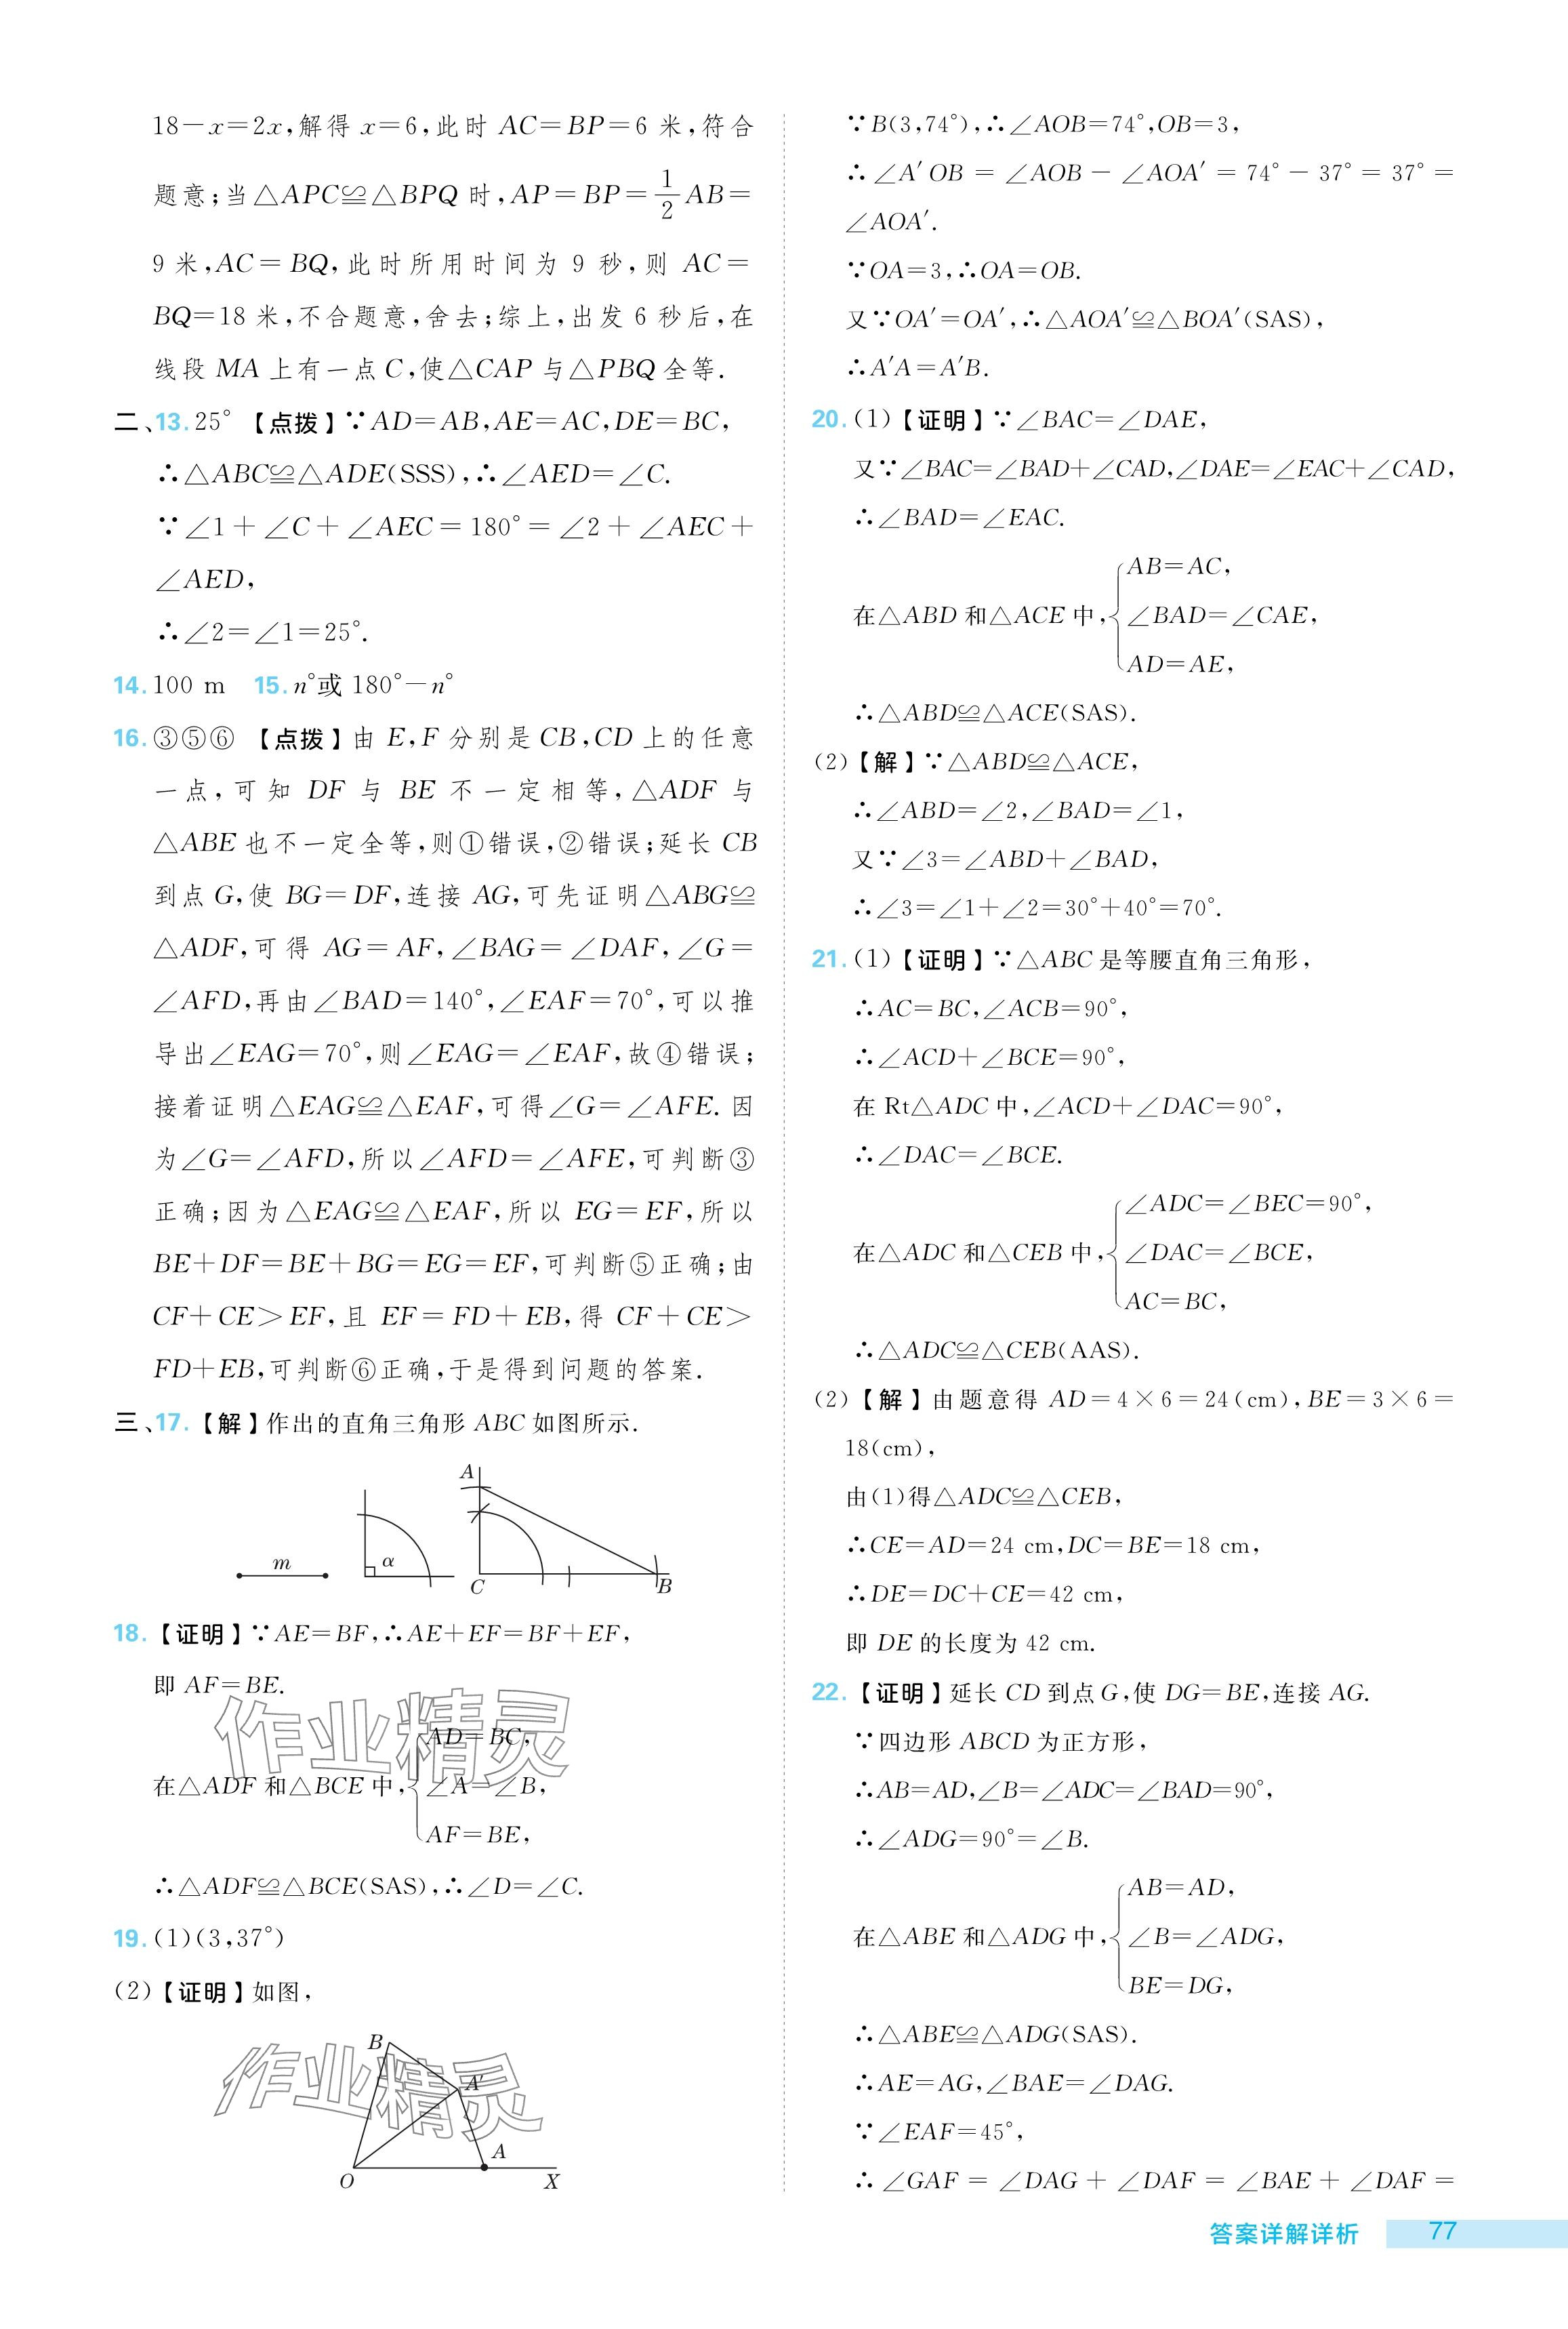 18－x＝2x,解得 x＝6,此时 AC＝BP＝6 米,符合
题意;当△APC≌△BPQ 时,AP＝BP＝1/2AB＝
9 米,AC＝BQ,此时所用时间为 9 秒,则 AC＝
BQ＝18 米,不合题意,舍去;综上,出发 6 秒后,在
线段 MA 上有一点 C,使△CAP 与△PBQ 全等.
二、13. 25° 【点拨】∵AD＝AB,AE＝AC,DE＝BC,
∴△ABC≌△ADE(SSS),∴∠AED＝∠C.
∵∠1＋∠C＋∠AEC＝180°＝∠2＋∠AEC＋
∠AED,
∴∠2＝∠1＝25°.
14. 100 m 15. n°或 180°－n°
16. ③⑤⑥ 【点拨】由 E,F 分别是 CB,CD 上的任意
一点,可知 DF 与 BE 不一定相等,△ADF 与
△ABE 也不一定全等,则①错误,②错误;延长 CB
到点 G,使 BG＝DF,连接 AG,可先证明△ABG≌
△ADF,可得 AG＝AF,∠BAG＝∠DAF,∠G＝
∠AFD,再由∠BAD＝140°,∠EAF＝70°,可以推
导出∠EAG＝70°,则∠EAG＝∠EAF,故④错误;
接着证明△EAG≌△EAF,可得∠G＝∠AFE. 因
为∠G＝∠AFD,所以∠AFD＝∠AFE,可判断③
正确;因为△EAG≌△EAF,所以 EG＝EF,所以
BE＋DF＝BE＋BG＝EG＝EF,可判断⑤正确;由
CF＋CE＞EF,且 EF＝FD＋EB,得 CF＋CE＞
FD＋EB,可判断⑥正确,于是得到问题的答案.
三、17.【解】作出的直角三角形 ABC 如图所示.
A
m
α
C
B
18.【证明】∵AE＝BF,∴AE＋EF＝BF＋EF,
即 AF＝BE.
作业精灵
AD＝BC,
在△ADF 和△BCE 中,{∠A＝∠B,
AF＝BE,
∴△ADF≌△BCE(SAS),∴∠D＝∠C.
19. (1)(3,37°)
(2)【证明】如图,
B
作业精灵
A′
A
O
X
∵B(3,74°),∴∠AOB＝74°,OB＝3,
∴∠A′OB＝∠AOB－∠AOA′＝74°－37°＝37°＝
∠AOA′.
∵OA＝3,∴OA＝OB.
又∵OA′＝OA′,∴△AOA′≌△BOA′(SAS),
∴A′A＝A′B.
20. (1)【证明】∵∠BAC＝∠DAE,
又∵∠BAC＝∠BAD＋∠CAD,∠DAE＝∠EAC＋∠CAD,
∴∠BAD＝∠EAC.
AB＝AC,
在△ABD 和△ACE 中,{∠BAD＝∠CAE,
AD＝AE,
∴△ABD≌△ACE(SAS).
(2)【解】∵△ABD≌△ACE,
∴∠ABD＝∠2,∠BAD＝∠1,
又∵∠3＝∠ABD＋∠BAD,
∴∠3＝∠1＋∠2＝30°＋40°＝70°.
21. (1)【证明】∵△ABC 是等腰直角三角形,
∴AC＝BC,∠ACB＝90°,
∴∠ACD＋∠BCE＝90°,
在 Rt△ADC 中,∠ACD＋∠DAC＝90°,
∴∠DAC＝∠BCE.
∠ADC＝∠BEC＝90°,
在△ADC 和△CEB 中,{∠DAC＝∠BCE,
AC＝BC,
∴△ADC≌△CEB(AAS).
(2)【解】由题意得 AD＝4×6＝24(cm),BE＝3×6＝
18(cm),
由(1)得△ADC≌△CEB,
∴CE＝AD＝24 cm,DC＝BE＝18 cm,
∴DE＝DC＋CE＝42 cm,
即 DE 的长度为 42 cm.
22.【证明】延长 CD 到点 G,使 DG＝BE,连接 AG.
∵四边形 ABCD 为正方形,
∴AB＝AD,∠B＝∠ADC＝∠BAD＝90°,
∴∠ADG＝90°＝∠B.
AB＝AD,
在△ABE 和△ADG 中,{∠B＝∠ADG,
BE＝DG,
∴△ABE≌△ADG(SAS).
∴AE＝AG,∠BAE＝∠DAG.
∵∠EAF＝45°,
∴∠GAF＝∠DAG＋∠DAF＝∠BAE＋∠DAF＝
答案详解详析 77